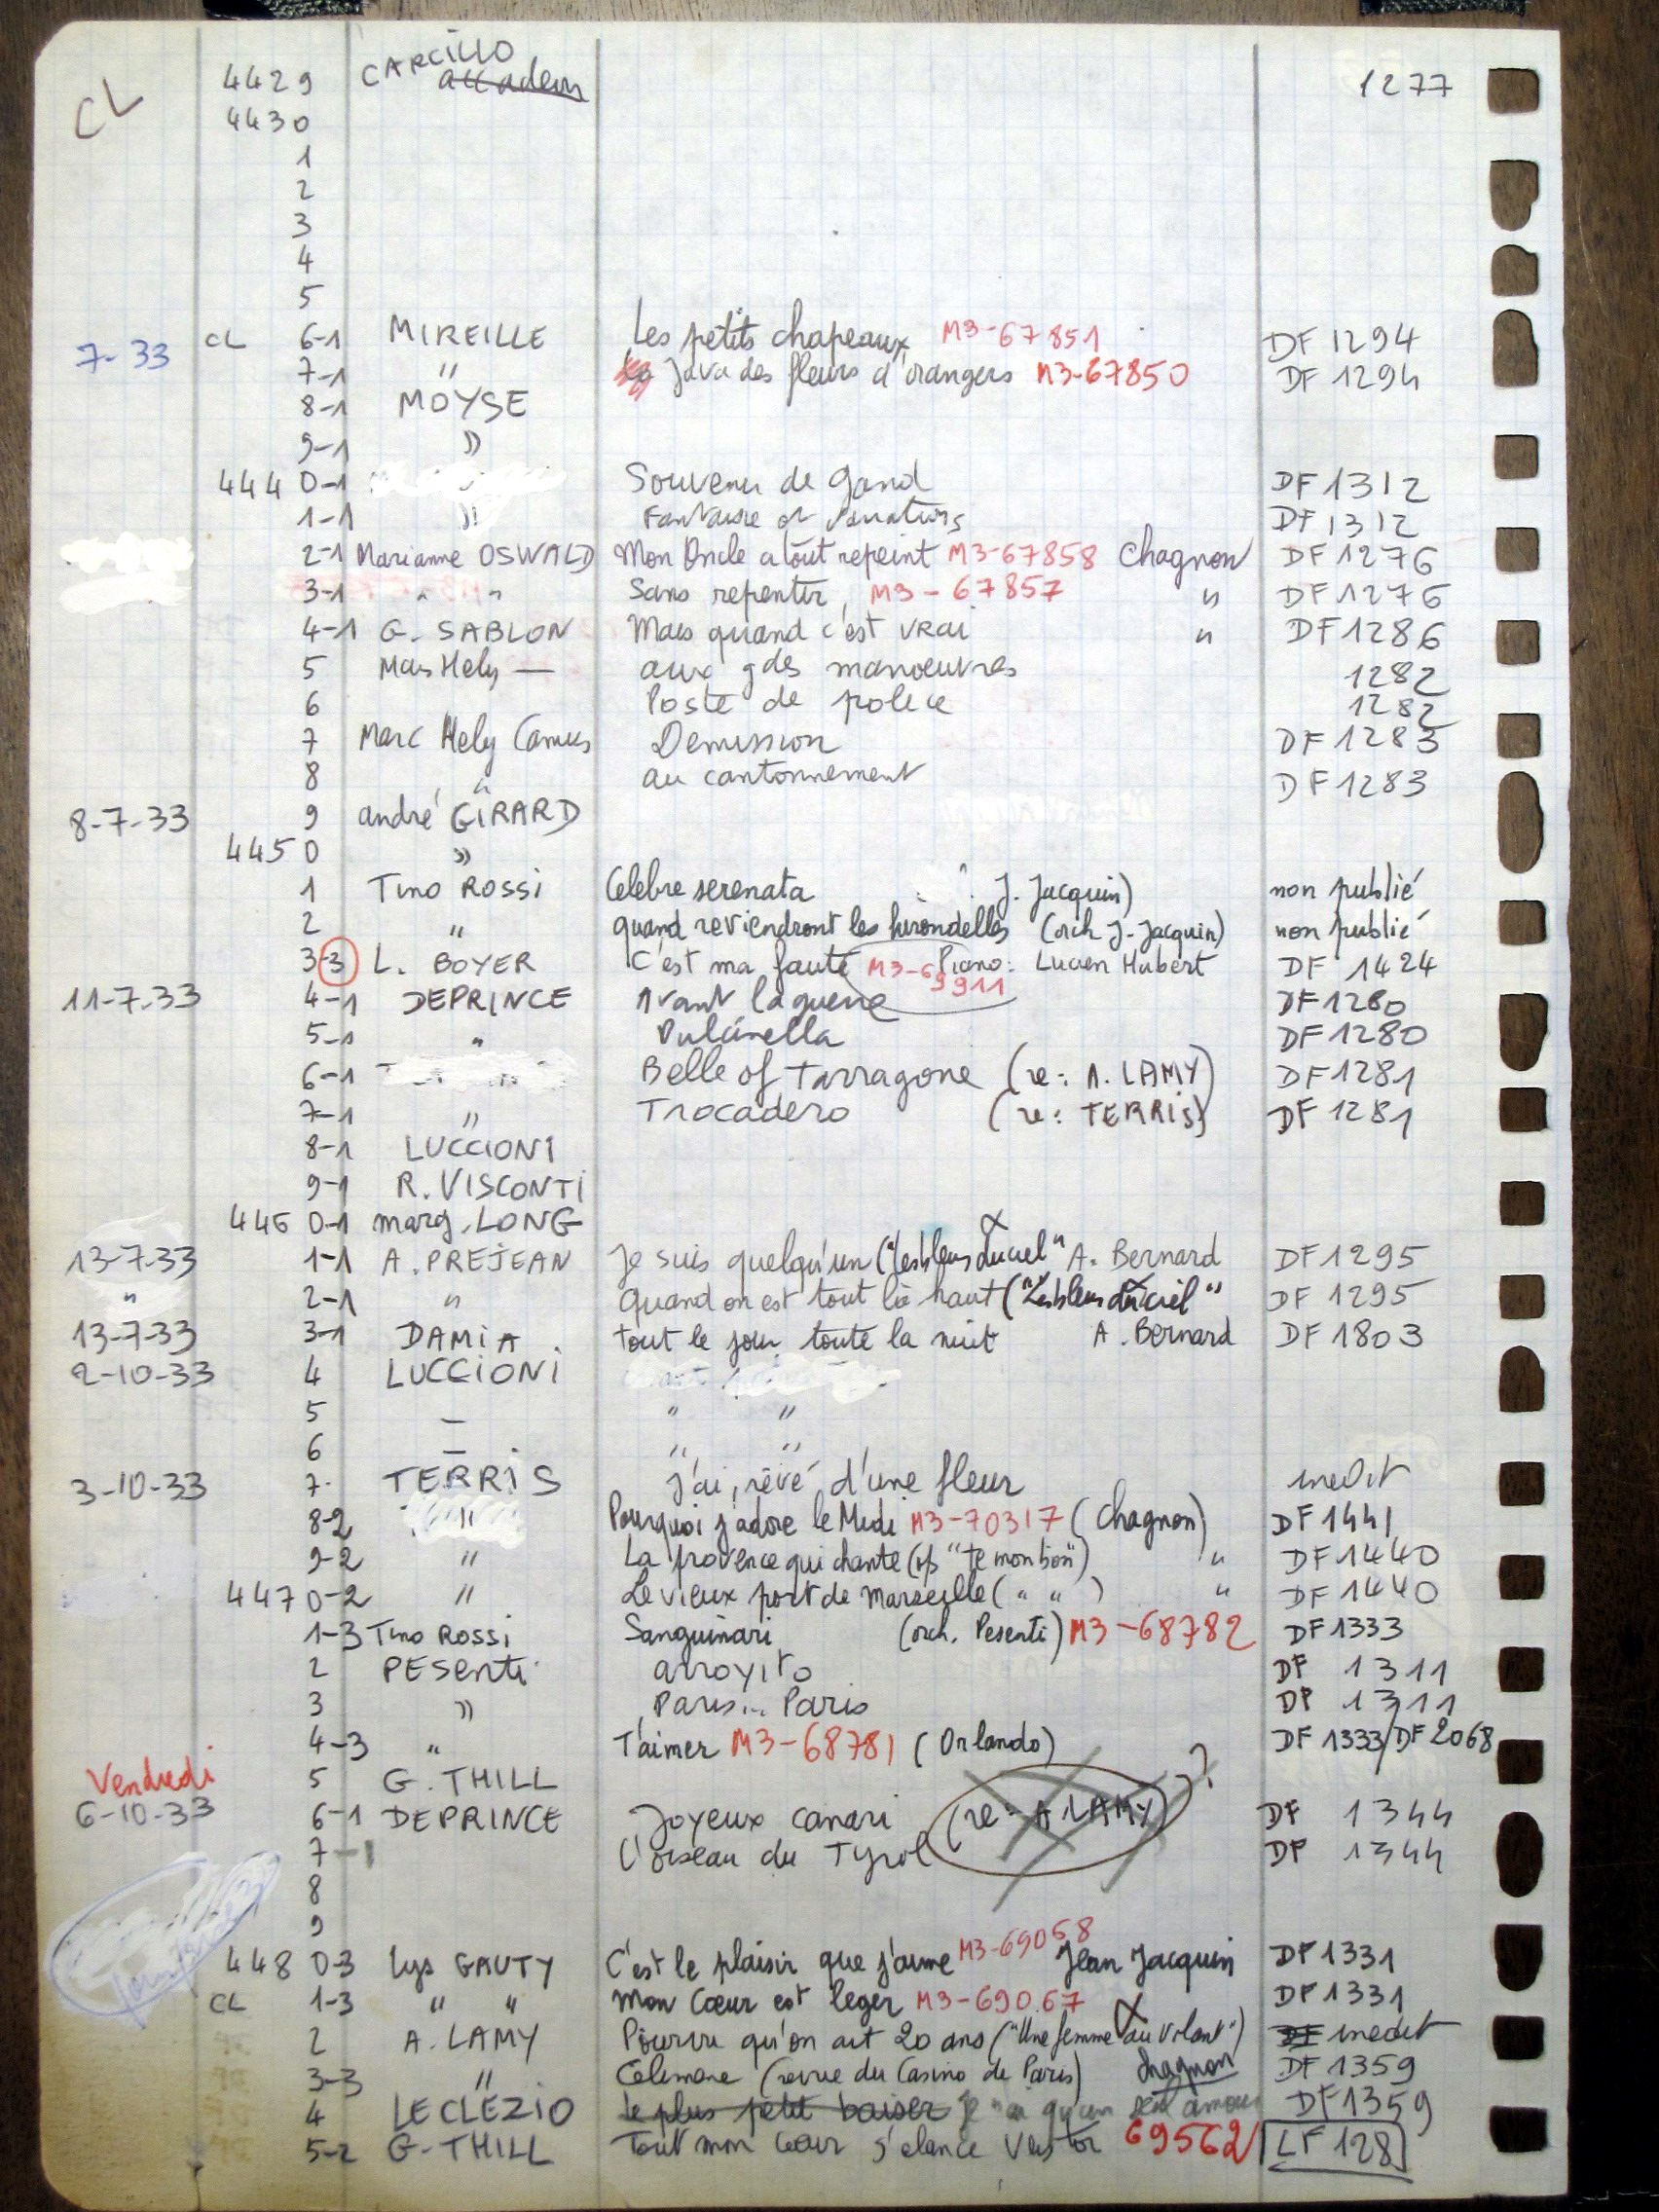 CL 4429 CARCILLO 1277
4430
1
2
3
4
5
7-33 CL 6-1 MIREILLE Les petits chapeaux M3-67851 DF 1294
7-1 " Java des fleurs d'orangers M3-67850 DF 1294
8-1 MOYSE
9-1 "
444 0-1 Souvenir de Gand DF 1312
1-1 " Fantaisie et variations DF 1312
2-1 Marianne OSWALD Mon Oncle a tout repeint M3-67858 Chagnon DF 1276
3-1 " " Sans repentir M3-67857 " DF 1276
4-1 G. SABLON Mais quand c'est vrai " DF 1286
5 Mar Hely — aux gdes manoeuvres 1282
6 Poste de police 1282
7 Marc Hely Camus Demission DF 1283
8 " au cantonnement DF 1283
8-7-33 9 andré GIRARD
445 0 "
1 Tino ROSSI Celebre serenata J. Jacquin) non publié
2 " quand reviendront les hirondelles (orch J. Jacquin) non publié
3-3 L. BOYER C'est ma faute M3-69911 Piano: Lucien Hubert DF 1424
11-7-33 4-1 DEPRINCE Avant la guerre DF 1280
5-1 " Pulcinella DF 1280
6-1 Belle of Tarragone (re: A. LAMY) DF 1281
7-1 " Trocadero (re: TERRIS) DF 1281
8-1 LUCCIONI
9-1 R. VISCONTI
446 0-1 marg. LONG
13-7-33 1-1 A. PREJEAN Je suis quelqu'un ("les bleus du ciel" A. Bernard DF 1295
" 2-1 " Quand on est tout là haut ("Les bleus du ciel" DF 1295
13-7-33 3-1 DAMIA tout le jour toute la nuit A. Bernard DF 1803
2-10-33 4 LUCCIONI
5 — " "
6 — " "
3-10-33 7. TERRIS J'ai rêvé d'une fleur inedit
8-2 " Pourquoi j'adore le Midi M3-70317 (Chagnon) DF 1441
9-2 " La provence qui chante (op "Te mon bon") " DF 1440
447 0-2 " Le vieux port de Marseille (" ") " DF 1440
1-3 Tino ROSSI Sanguinari (orch. Pesenti) M3-68782 DF 1333
2 PESenti arroyito DF 1311
3 " Paris... Paris DF 1311
4-3 " T'aimer M3-68781 (Orlando) DF 1333/DF 2068
Vendredi 5 G. THILL
6-10-33 6-1 DEPRINCE Joyeux canari (re: A LAMY) ? DF 1344
7-1 L'oiseau du Tyrol DF 1344
8
9
448 0-3 Lys GAUTY C'est le plaisir que j'aime M3-69068 Jean Jacquin DF 1331
CL 1-3 " " Mon Cœur est leger M3-69067 DF 1331
2 A. LAMY Pourvu qu'on ait 20 ans ("Une femme au volant") DF inedit
3-3 " Celimene (revue du Casino de Paris) Chagnon DF 1359
4 LECLEZIO Le plus petit baiser Je n'ai qu'un seul amour DF 1359
5-2 G. THILL Tout mon cœur s'elance vers toi 69562 LF 128